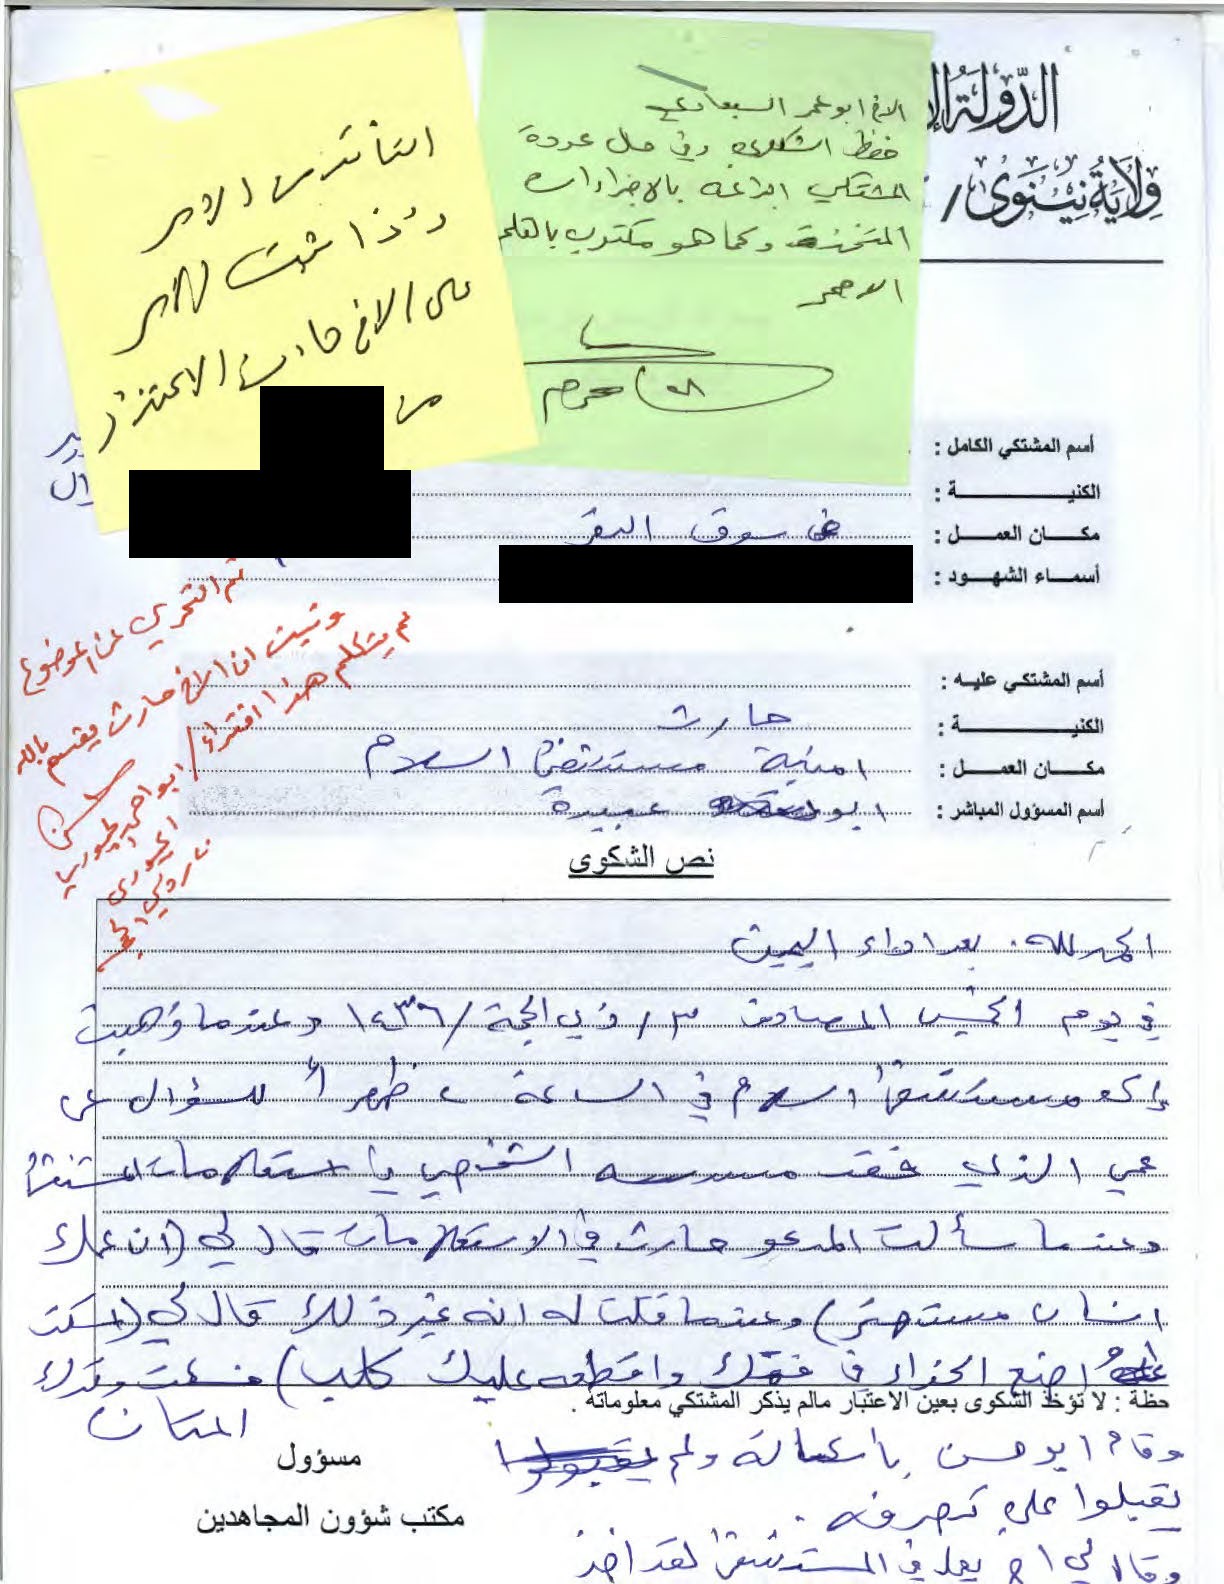 الدولة الإ
ولاية نينوى /
الاخ ابو عمر السبعاوي
حفظ الشكوى وفي حال عودة
المشتكي ابلاغه بالاجراءات
المتخذة وكما هو مكتوب بالقلم
الاحمر
محرم
الامر
وإذا ثبت الامر
على الاخ حارث الاعتذار
من
أسم المشتكي الكامل :
الكنية :
مكان العمل : في سوق البقر
أسماء الشهود :
تم التحري عن الموضوع
وتبين ان الاخ حارث يقسم بالله
لم يتكلم هذا افتراء /
أسم المشتكي عليه :
الكنية : حارث
مكان العمل : امنية مستشفى السلام
أسم المسؤول المباشر : ابو عبيدة
نص الشكوى
الحمد لله . بعد اداء اليمين
في يوم الخميس المصادف ٣ / ذي الحجة / ١٤٣٦ وعندما ذهبت
إلى مستشفى السلام في الساعة ٢ ظهراً للسؤال عن
عمي الذي فقد مسدسه الشخصي باستعلامات المستشفى
وعندما سألت المدعو حارث في الاستعلامات قال لي (ان عمك
انسان مستهتر) وعندما قلت له انه غير ذلك قال لي (اسكت
اضع الحذاء في فمك واقطعه عليك كلب) فسكت وتركت
المكان
حظة : لا تؤخذ الشكوى بعين الاعتبار مالم يذكر المشتكي معلوماته .
وقام ابو حسن ولم
يقبلوا على تصرفه .
وقال لي اخ يعمل في المستشفى لقد اخذ
مسؤول
مكتب شؤون المجاهدين